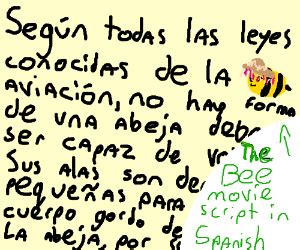 Según todas las leyes
conocidas de la
aviación, no hay forma
de una abeja
ser capaz de
Sus alas son
pequeñas para
cuerpo gordo
la abeja, por
The
Bee
movie
script in
Spanish